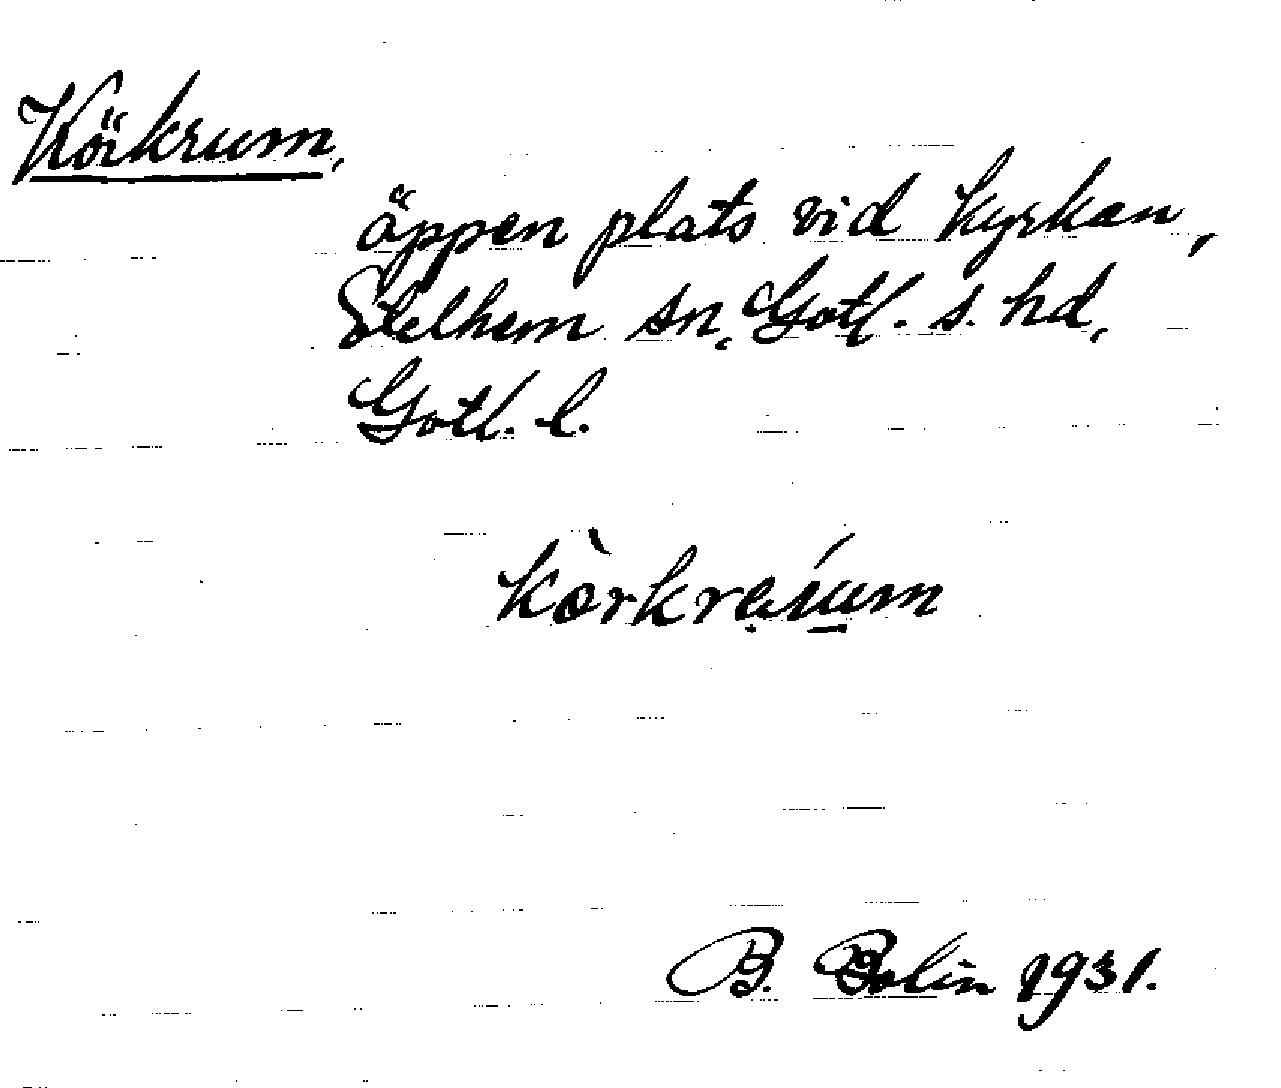 Körkrum,
öppen plats vid kyrkan,
Stelhem sn, Gotl. s. hd,
Gotl. l.
B. Bolin 1931.